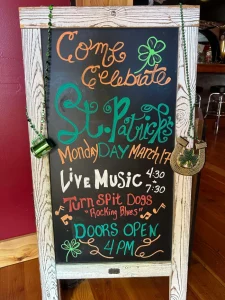 Come
Celebrate
St. Patrick's
Monday DAY March 17
Live Music 4:30
7:30
Turn Spit Dogs
"Rocking Blues"
Doors Open
4 PM